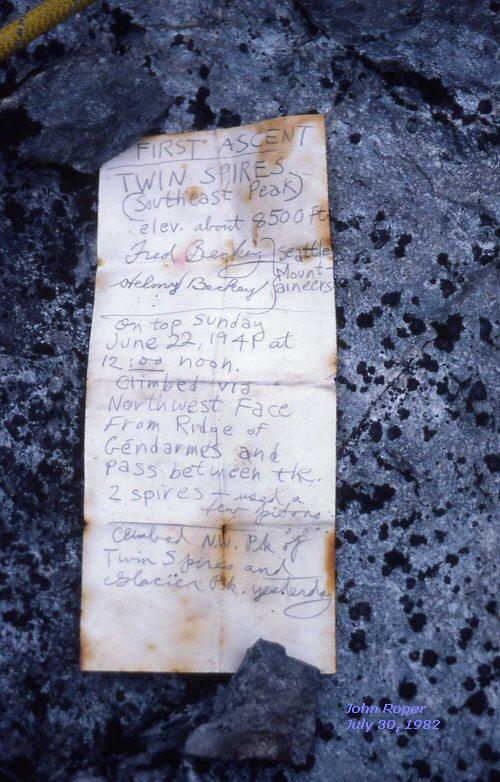 FIRST ASCENT
TWIN SPIRES
(Southeast Peak)
elev. about 8500 ft.
Fred Beckey
Helmy Beckey
Seattle
Mount-
aineers
On top Sunday
June 22, 1941 at
12:00 noon.
Climbed via
Northwest Face
From Ridge of
Gendarmes and
pass between the
2 spires - used a
few pitons.
Climbed N.W. Pk of
Twin Spires and
Glacier Pk. yesterday.
John Roper
July 30, 1982